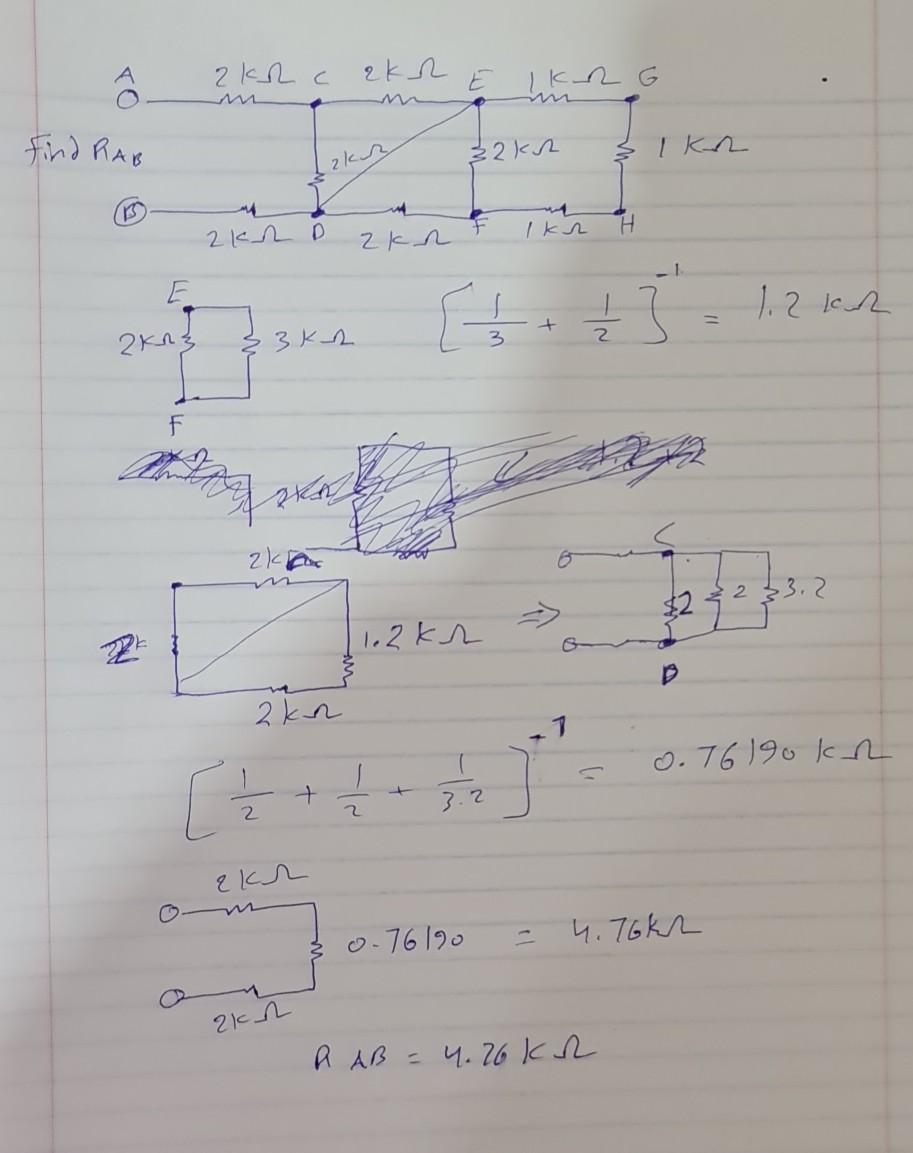 A 2kΩ C 2kΩ E 1kΩ G
Find RAB
2kΩ 2kΩ 1 kΩ
B
2kΩ D 2kΩ F 1kΩ H
E
2kΩ 3kΩ [1/3 + 1/2]^-1 = 1.2 kΩ
F
2kΩ
2k
C
2 2 3.2
1.2 kΩ ⇒
2kΩ
D
[1/2 + 1/2 + 1/3.2]^-1 = 0.76190 kΩ
2kΩ
0.76190 = 4.76kΩ
2kΩ
R AB = 4.76 kΩ